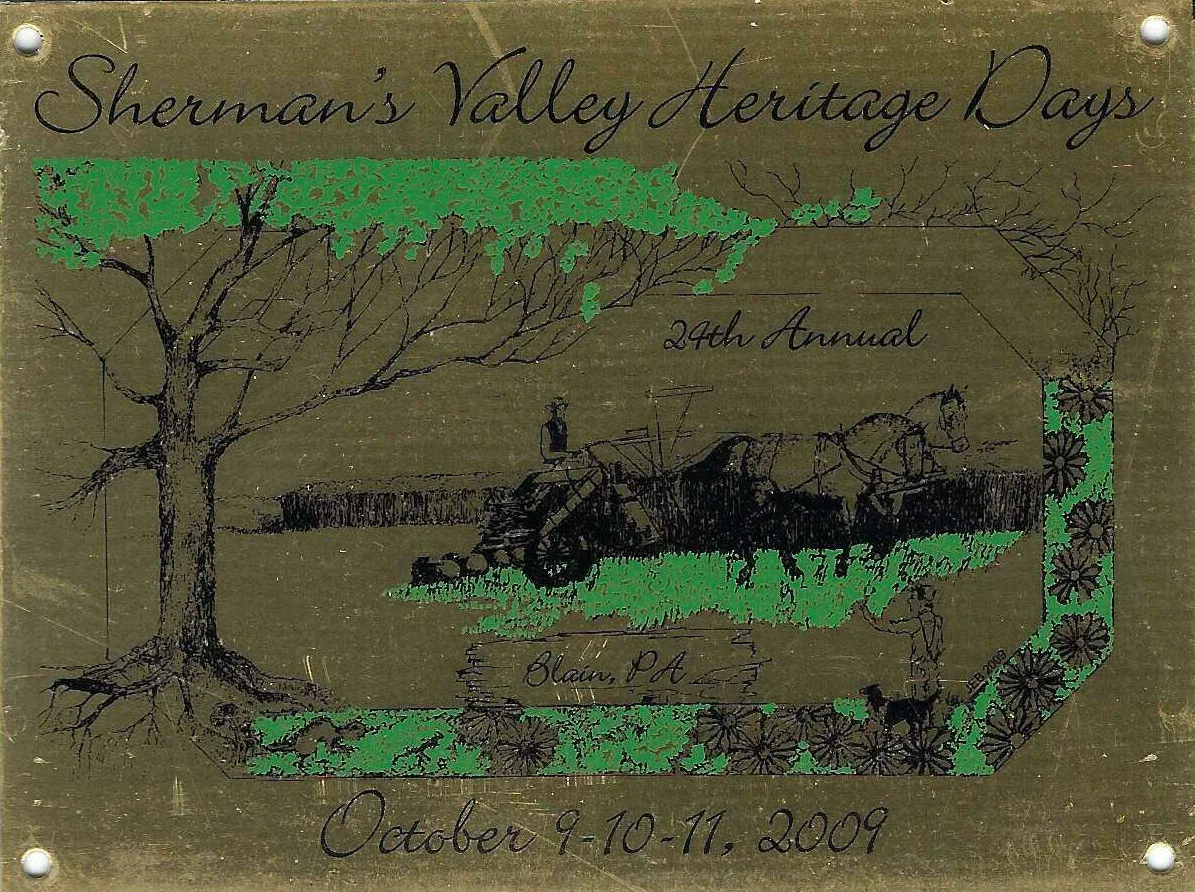 Sherman's Valley Heritage Days
24th Annual
Blain, PA
JEB 2009
October 9-10-11, 2009